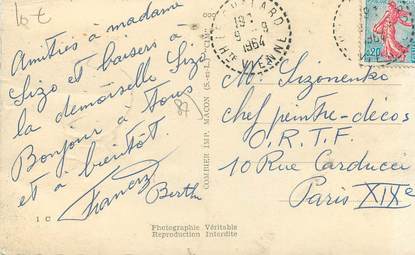 10 €
Amitiés à madame
Sizo et baisers à
la demoiselle Sizo
Bonjour à Tous
et à bientôt
Francis
Berthe
87
1 C
COMBIER IMP. MACON (S.-et-L.) "CIM"
Photographie Véritable
Reproduction Interdite
1964
VIENNE
0,20
M. Sizonenko
chef peintre-décos
O.R.T.F.
10 Rue Carducci
Paris XIXe